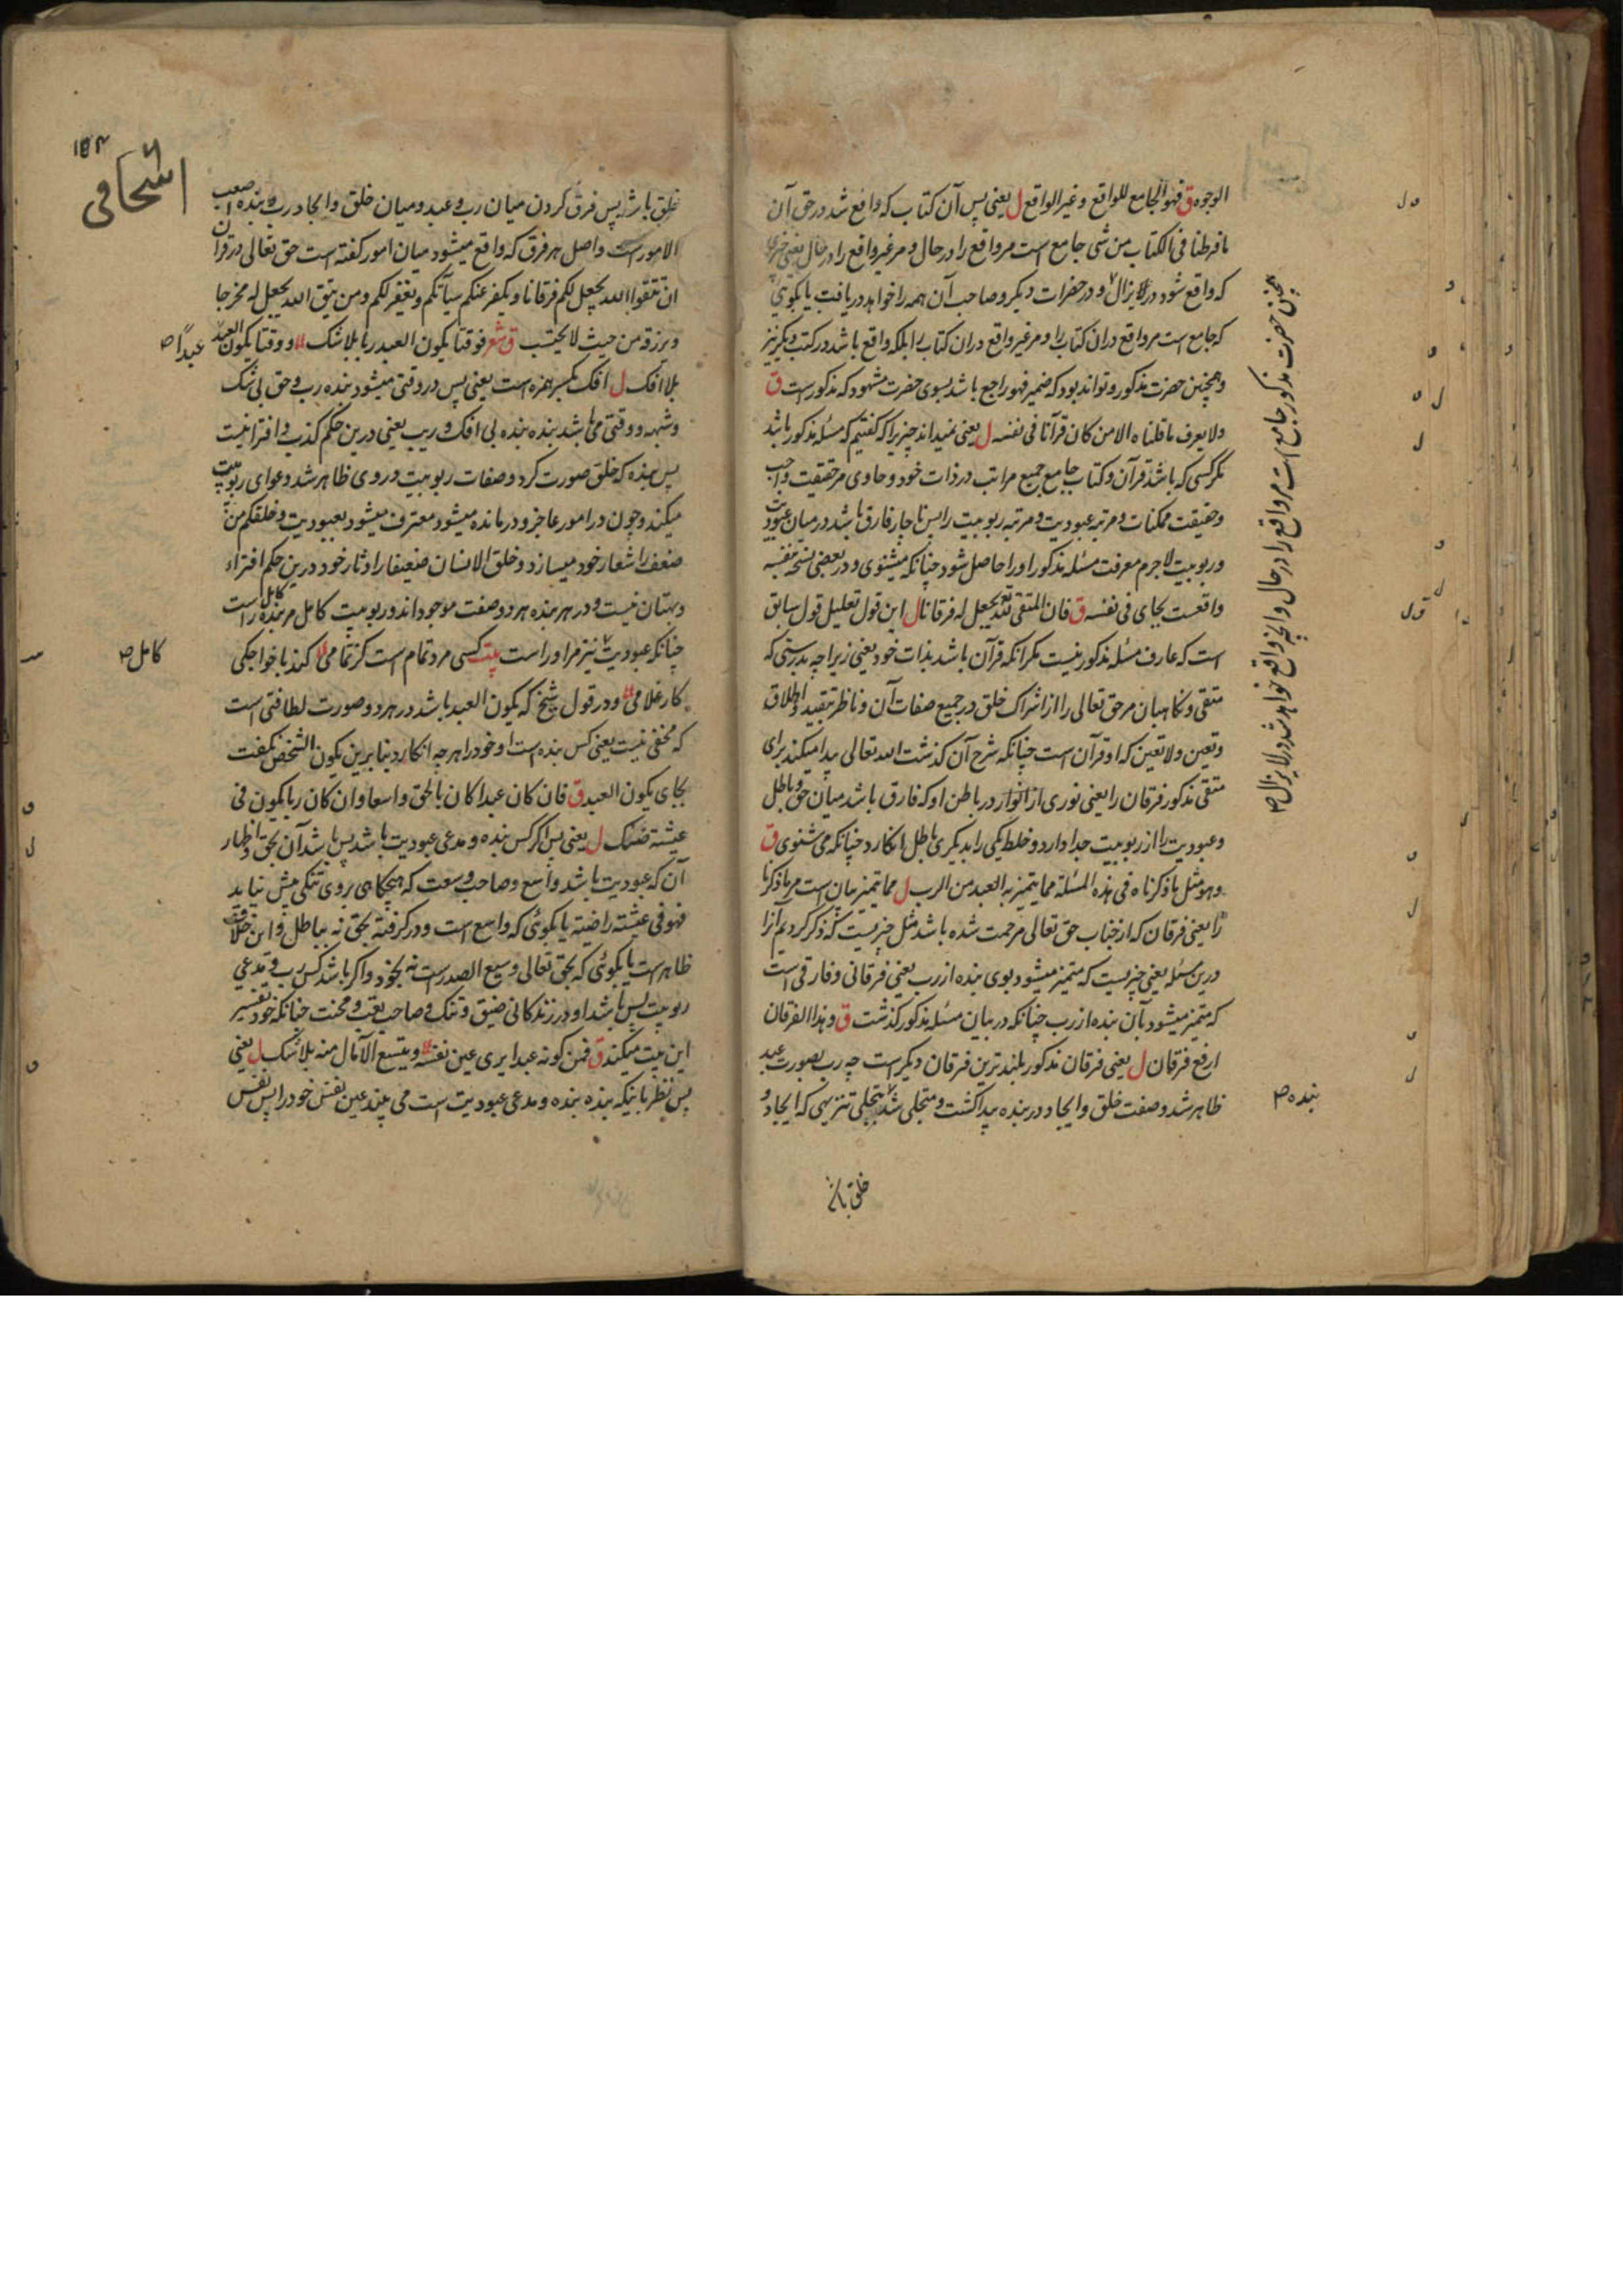 الوجوه ق فهو الجامع للواقع و غیر الواقع ل یعنی پس آن کتاب که واقع شد در حق آن
ما فرطنا فی الکتاب من شی جامع است مر واقع را در حال و مر غیر واقع را در حال یعنی چیزی
که واقع شود در لایزال و در حضرات دیکر و صاحب آن همه را خواهد دریافت یا بکوئی
که جامع است مر واقع در ان کتاب را و مر غیر واقع در ان کتاب را بلکه واقع باشد در کتب دیکر نیز
و همچنین حضرت مذکور و تواند بود که ضمیر فهو راجع باشد بسوی حضرت مشهود که مذکور است ق
ولا یعرف ما قلناه الا من کان قرآنا فی نفسه ل یعنی نمیداند چیزیرا که کفتیم که مسئله مذکور باشد
مکر کسی که باشد قرآن و کتاب جامع جمیع مراتب در ذات خود و حاوی مر حقیقت واجب
و حقیقت ممکنات و مرتبه عبودیت و مرتبه ربوبیت را پس ناچار فارق باشد در میان عبودیت
و ربوبیت لاجرم معرفت مسئله مذکور او را حاصل شود چنانکه میشنوی و در بعضی نسخ بنفسه
واقعست بجای فی نفسه ق فان المتقی الله یجعل له فرقانا ل این قول تعلیل قول سابق
است که عارف مسئله مذکور نیست مکر آنکه قرآن باشد بذات خود یعنی زیرا چه بدرستی که
متقی و نکاهبان مر حق تعالی را از اشراک خلق در جمیع صفات آن و ناظر بتقیید و اطلاق
و تعین و لاتعین که او قرآن است چنانکه شرح آن کذشت الله تعالی پیدا میکند برای
متقی مذکور فرقان را یعنی نوری از انوار در باطن او که فارق باشد میان حق و باطل
و عبودیت را از ربوبیت جدا دارد و خلط یکی را بدیکری باطل انکارد چنانکه می شنوی ق
و هو مثل ما ذکرناه فی هذه المسئلة مما یتمیز به العبد من الرب ل مما یتمیز بیان است مر ما ذکرنا
را یعنی فرقان که از جناب حق تعالی مرحمت شده باشد مثل چیزیست که ذکر کردیم آنرا
درین مسئله یعنی چیزیست که متمیز میشود بوی بنده از رب یعنی فرقانی و فارقی است
که متمیز میشود بآن بنده از رب چنانکه در بیان مسئله مذکور کذشت ق و هذا الفرقان
ارفع فرقان ل یعنی فرقان مذکور بلند ترین فرقان دیکر است چه رب بصورت عبد
ظاهر شد و صفت خلق و ایجاد در بنده پیدا کشت و متجلی شد بتجلی تنزیهی که ایجاد و
خلق باشد
همچنین حضرت مذکور جامع است مر واقع را در حال و آنچه واقع خواهد شد در لایزال ص
بنده ص
اسحاقی
۱۵۴
خلق باشد پس فرق کردن میان رب و عبد و میان خلق و ایجاد رب و بنده اصعب
الامور است و اصل هر فرق که واقع میشود میان امور کفته است حق تعالی در قرآن
ان تتقوا الله یجعل لکم فرقانا و یکفر عنکم سیآتکم و یغفر لکم و من یتق الله یجعل له مخرجا
و یرزقه من حیث لا یحتسب ق شعر فوقتا یکون العبد ربا بلا شک و وقتا یکون العبد
عبداً ص
بلا افک ل افک بکسر همزه است یعنی پس در وقتی میشود بنده رب و حق بی شک
و شبهه و وقتی می باشد بنده بنده بی افک و ریب یعنی درین حکم کذب و افترا نیست
پس بنده که خلق صورت کرد و صفات ربوبیت در وی ظاهر شد دعوای ربوبیت
میکند و چون در امور عاجز و درمانده میشود معترف میشود بعبودیت و خلقکم من
ضعف را شعار خود میسازد و خلق الانسان ضعیفا را دثار خود درین حکم افتراء
و بهتان نیست و در هر بنده هر دو صفت موجود اند و ربوبیت کامل مر بنده کامل راست
چنانکه عبودیت نیز مر او راست بیت کسی مرد تمام است کز تمامی کند با خواجکی
کامل ص
کار غلامی و در قول شیخ که یکون العبد باشد در هر دو صورت لطافتی است
که مخفی نیست یعنی کس بنده است او خود را هر چه انکارد بنابرین یکون الشخص نکفت
بجای یکون العبد ق فان کان عبدا کان بالحق واسعا و ان کان ربا یکون فی
عیشة ضنک ل یعنی پس اکر کس بنده و مدعی عبودیت باشد پس باشد آن بحق و اظهار
آن که عبودیت باشد واسع و صاحب وسعت که هیچکاهی بروی تنکی پیش نیاید
فهو فی عیشة راضیة یا بکوئی که واسع است و در کرفته بحق نه بباطل و این
ظاهر است یا بکوئی که بحق تعالی وسیع الصدر است نه بخود و اکر باشد کس رب و مدعی
ربوبیت پس باشد او در زندکانی ضیق و تنک و صاحب تعب و محنت چنانکه خود تفسیر
این بیت میکند ق فمن کونه عبدا یری عین نفسه و یتسع الآمال منه بلا شک ل یعنی
پس نظر بآنیکه بنده بنده و مدعی عبودیت است می بیند عین نفس خود را پس نفس